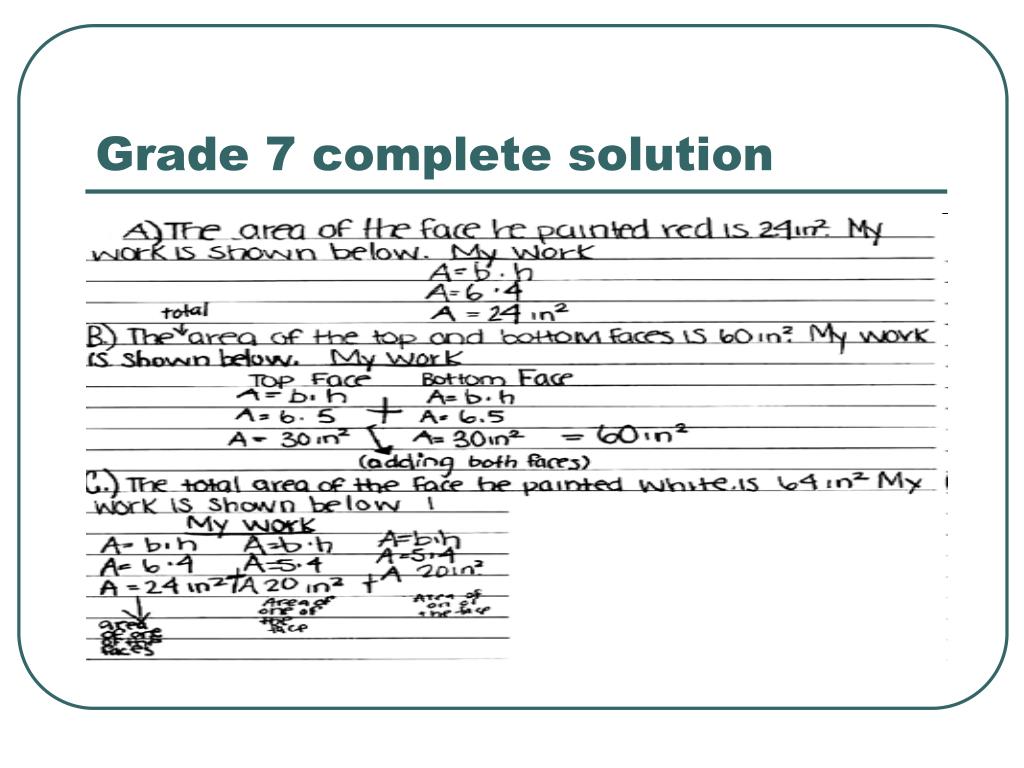 Grade 7 complete solution
A) The area of the face he painted red is 24in². My
work is shown below. My work
A=b·h
A=6·4
A = 24 in²
total
B.) The area of the top and bottom faces is 60in². My work
is shown below. My work
Top Face Bottom Face
A=b·h A=b·h
A=6·5 + A=6.5
A= 30in² A=30in² = 60in²
(adding both faces)
C.) The total area of the face he painted white is 64in² My
work is shown below !
My work
A=b·h A=b·h A=b·h
A=6·4 A=5·4 A=5·4
A=24in² + A 20 in² + A 20in²
area of one of the faces
Area of one of the face
Area of on of the face